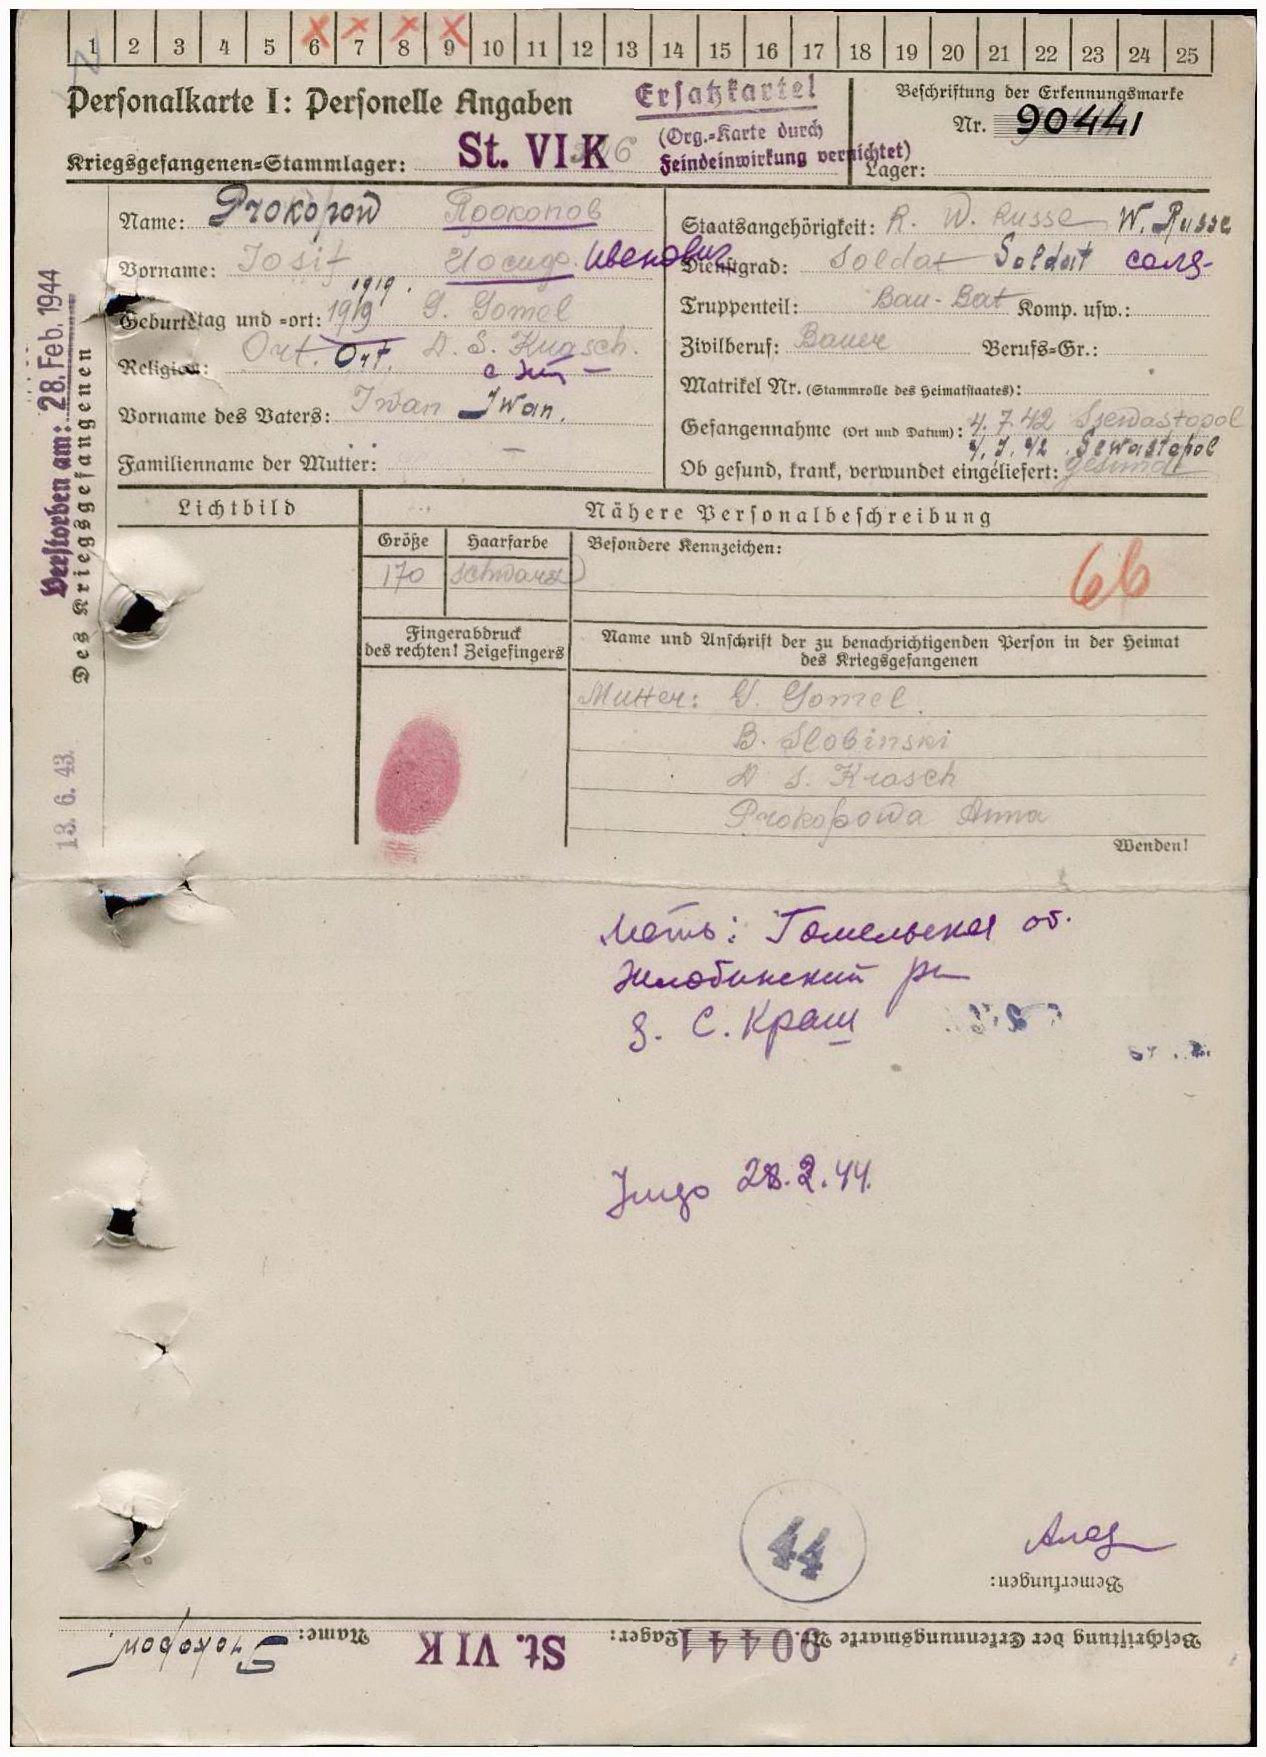 1 2 3 4 5 6 7 8 9 10 11 12 13 14 15 16 17 18 19 20 21 22 23 24 25
Personalkarte I: Personelle Angaben
Ersatzkartei
(Org.-Karte durch
Feindeinwirkung vernichtet)
Beschriftung der Erkennungsmarke
Nr. 90441
Lager:
Kriegsgefangenen-Stammlager: St. VI K
Name: Prokopow Прокопов
Vorname: Iosif Иосиф. Иванович
1919.
Geburtstag und -ort: 1919 G. Gomel
Religion: Ort. Ort. D. S.
Vorname des Vaters: Iwan Iwan.
Familienname der Mutter: —
Staatsangehörigkeit: R. W. Russe W. Russe
Dienstgrad: Soldat Soldat солд-
Truppenteil: Bau-Bat Komp. usw.:
Zivilberuf: Bauer Berufs-Gr.:
Matrikel Nr. (Stammrolle des Heimatstaates):
Gefangennahme (Ort und Datum): 4.7.42 Ssewastopol
4.7.42 Sewastopol
Ob gesund, krank, verwundet eingeliefert: gesund
Verstorben am: 28. Feb. 1944
Des Kriegsgefangenen
13. 6. 43.
Lichtbild
Nähere Personalbeschreibung
Größe Haarfarbe Besondere Kennzeichen:
170 schwarz
66
Fingerabdruck
des rechten! Zeigefingers
Name und Anschrift der zu benachrichtigenden Person in der Heimat
des Kriegsgefangenen
Mutter: G. Gomel
B. Slobinski
D S. Krasch
Prokopowa Anna
Wenden!
Мать: Гомельская об.
Жлобинский рн
д. С. Краш
28.2.44.
44
Bemerkungen:
Beschriftung der Erkennungsmarke Nr. 90441 Lager: St. VI K Name: Prokopow